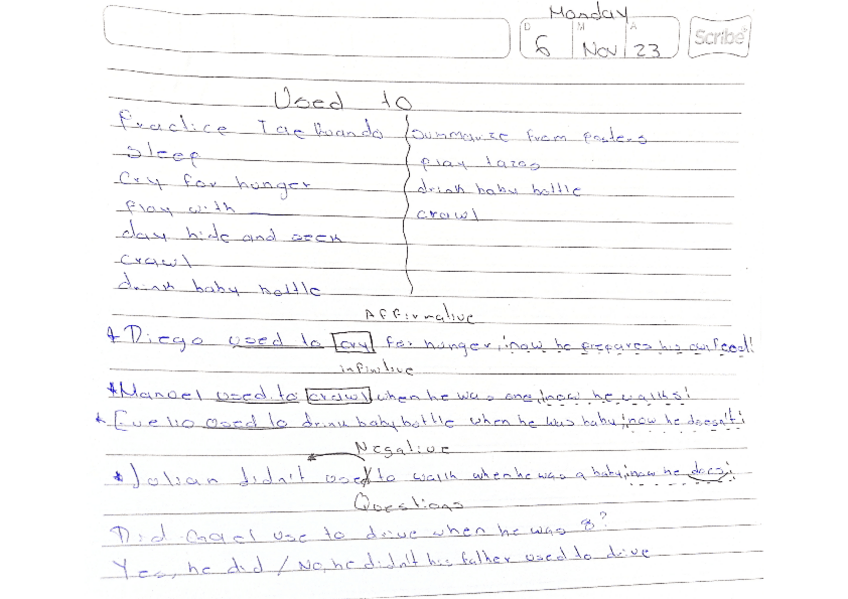 Monday
D M A
6 Nov 23
Scribe
Used to
Practice Taekwando
summarize from posters
sleep
play tazos
Cry for hunger
drink baby bottle
Play with
crawl
day hide and seek
crawl
drink baby bottle
Affirmative
* Diego used to cry for hunger, now he prepares his own feed!
infinitive
* Manuel used to crawl when he was one, now he walks!
* used to drink baby bottle when he was baby, now he doesn't!
Negative
* Julian didn't used to walk when he was a baby, now he does
Questions
Did Gael use to drive when he was 8?
Yes, he did / No, he didn't his father used to drive